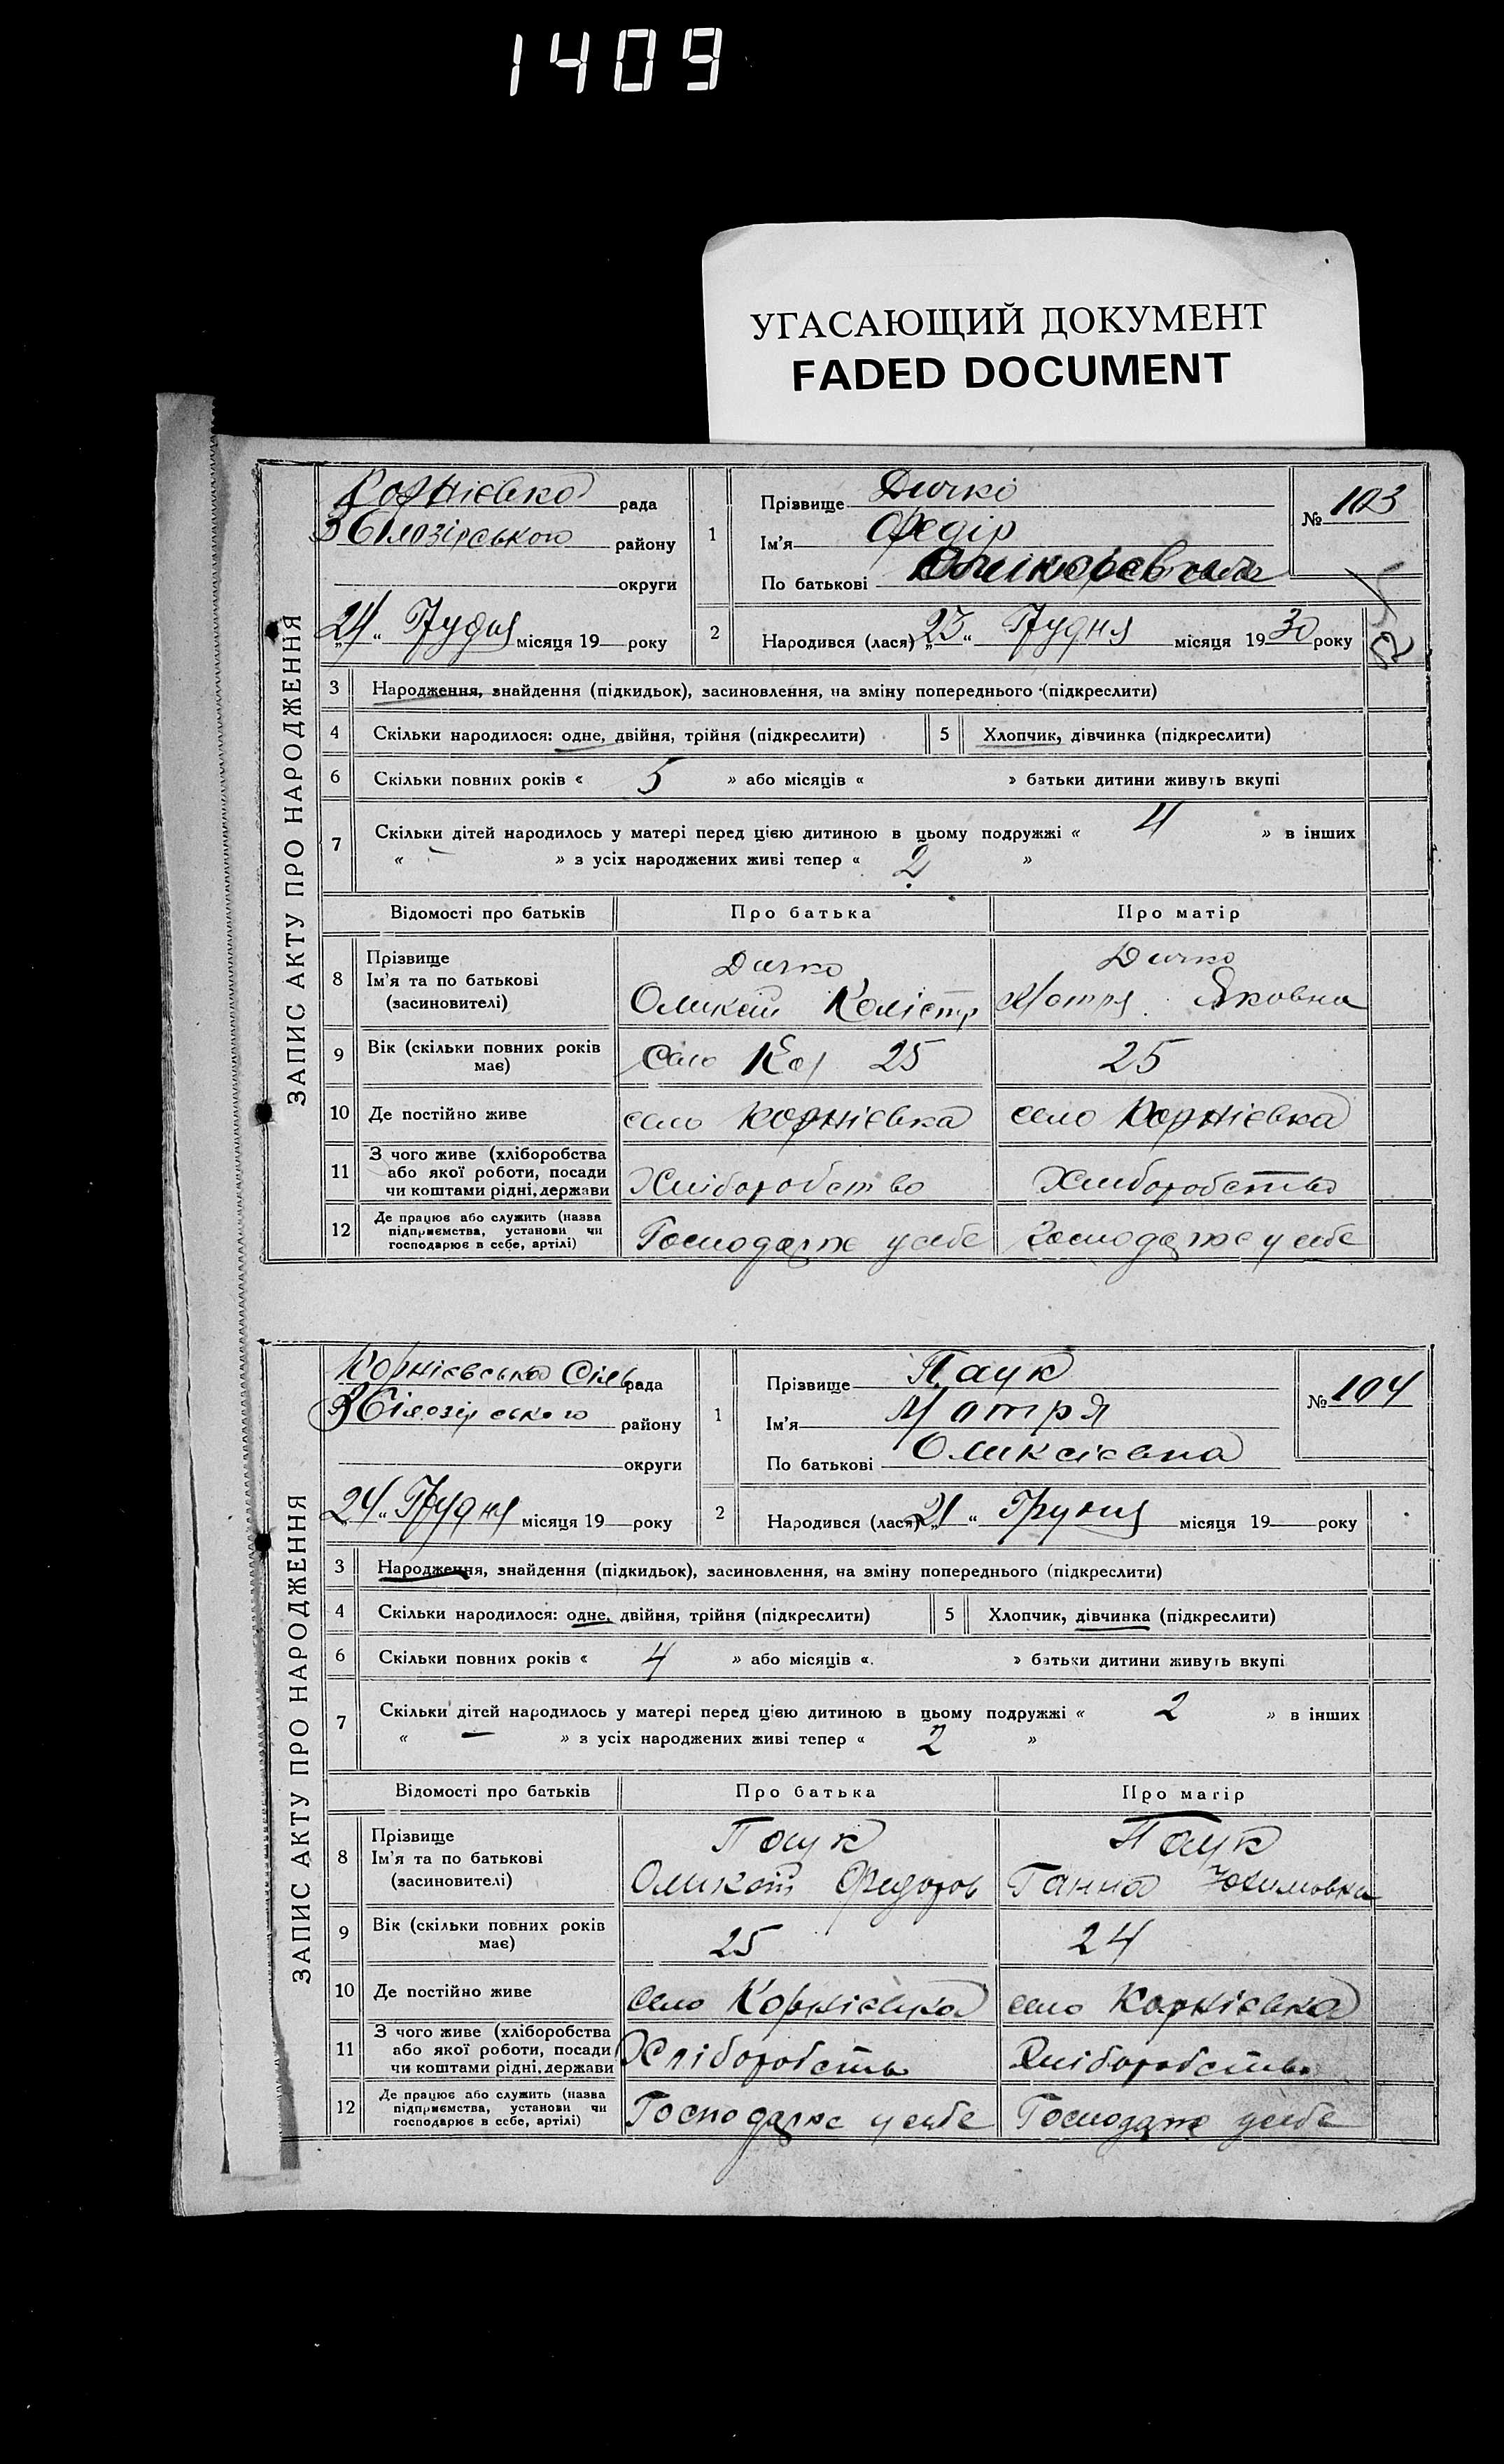 1409
УГАСАЮЩИЙ ДОКУМЕНТ
FADED DOCUMENT
ЗАПИС АКТУ ПРО НАРОДЖЕННЯ
Корнієвка рада
Білозірського району
округи
24 Грудня місяця 19 року
1
Прізвище Дичко
Ім'я Федір
По батькові
№ 103
2
Народився (лася) „23“ Грудня місяця 1930 року
3 Народження, знайдення (підкидьок), засиновлення, на зміну попереднього (підкреслити)
4 Скільки народилося: одне, двійня, трійня (підкреслити) 5 Хлопчик, дівчинка (підкреслити)
6 Скільки повних років « 5 » або місяців « » батьки дитини живуть вкупі
7 Скільки дітей народилось у матері перед цією дитиною в цьому подружжі « 4 » в інших
« - » з усіх народжених живі тепер « 2 »
Відомості про батьків Про батька Про матір
8 Прізвище Ім'я та по батькові (засновителі)
Дичко Дичко
Оликсій Келістр Мотря Яковна
9 Вік (скільки повних років має) Село Кор 25 25
10 Де постійно живе село Корнієвка село Корнієвка
11 З чого живе (хліборобства або якої роботи, посади чи коштами рідні, держави Хліборобство Хліборобство
12 Де працює або служить (назва підприємства, установи чи господарює в себе, артілі) Господарює у себе господарює у себе
ЗАПИС АКТУ ПРО НАРОДЖЕННЯ
Корнієвська Сіль рада
Білозірського району
округи
„24“ Грудня місяця 19 року
1
Прізвище Паук
Ім'я Мотря
По батькові Оликсієвна
№ 104
2
Народився (лася) „21“ Грудня місяця 19 року
3 Народження, знайдення (підкидьок), засиновлення, на зміну попереднього (підкреслити)
4 Скільки народилося: одне, двійня, трійня (підкреслити) 5 Хлопчик, дівчинка (підкреслити)
6 Скільки повних років « 4 » або місяців « » батьки дитини живуть вкупі
7 Скільки дітей народилось у матері перед цією дитиною в цьому подружжі « 2 » в інших
« — » з усіх народжених живі тепер « 2 »
Відомості про батьків Про батька Про матір
8 Прізвище Ім'я та по батькові (засиновителі)
Паук Паук
Оликсій Федоров Ганна Юхимовна
9 Вік (скільки повних років має) 25 24
10 Де постійно живе село Корнієвка село Корнієвка
11 З чого живе (хліборобства або якої роботи, посади чи коштами рідні, держави Хліборобств Хліборобство
12 Де працює або служить (назва підприємства, установи чи господарює в себе, артілі) Господарює у себе Господарює у себе